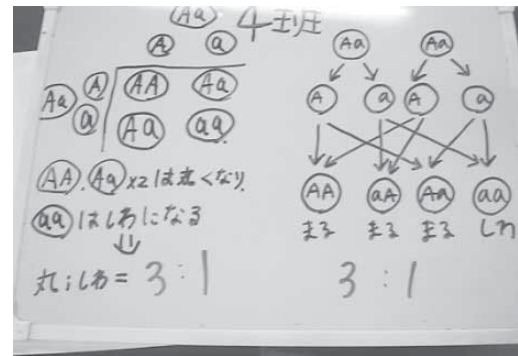 Aa 4班
A a
Aa A AA Aa
a Aa aa
AA.Aa×2は丸くなり
aaはしわになる
⇓
丸:しわ=3:1
Aa Aa
A a A a
AA aA Aa aa
まる まる まる しわ
3:1